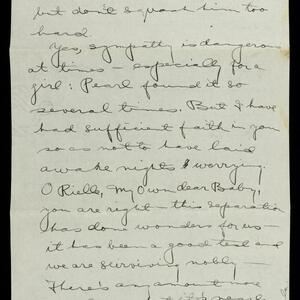 but don't squash him too
hard.
Yes, sympathy is dangerous
at times – especially for a
girl: Pearl found it so
several times. But I have
had sufficient faith in you
so as not to have laid
awake nights worrying.
O Rielle, my own dear Baby,
you are right – this separation
has done wonders for us –
it has been a good test and
we are surviving nobly –
There's any amount more